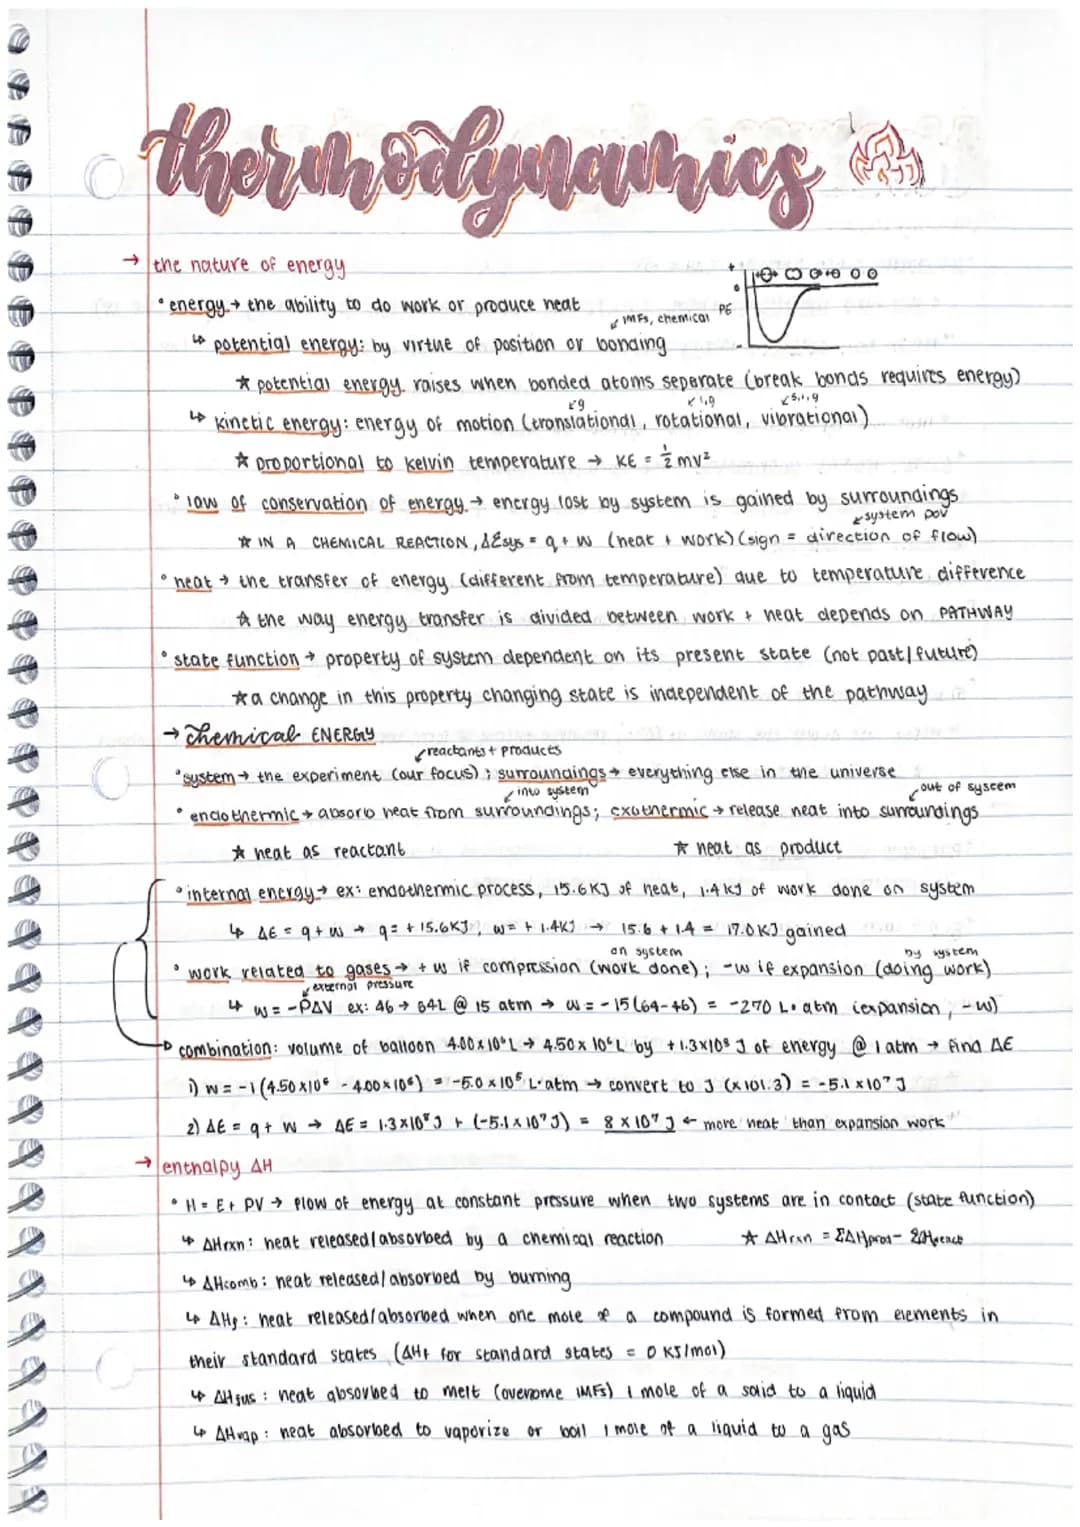 thermodynamics
→ the nature of energy
• energy → the ability to do work or produce heat
IMFs, chemical
PE
+
0
-
↳ potential energy: by virtue of position or bonding
☆ potential energy raises when bonded atoms seperate (break bonds requires energy)
g l,g s,l,g
↳ kinetic energy: energy of motion (translational, rotational, vibrational)
☆ proportional to kelvin temperature → KE = 1/2 mv²
• law of conservation of energy → energy lost by system is gained by surroundings
system pov
☆ IN A CHEMICAL REACTION, ΔEsys = q + w (heat + work) (sign = direction of flow)
• heat → the transfer of energy (different from temperature) due to temperature difference
☆ the way energy transfer is divided between work + heat depends on PATHWAY
• state function → property of system dependent on its present state (not past/future)
☆ a change in this property changing state is independent of the pathway
→ chemical ENERGY
reactants + products
• system → the experiment (our focus); surroundings → everything else in the universe
into system out of system
• endothermic → absorb heat from surroundings; exothermic → release heat into surroundings
☆ heat as reactant ☆ heat as product
• internal energy → ex: endothermic process, 15.6 KJ of heat, 1.4 kJ of work done on system
↳ ΔE = q + w → q = +15.6KJ, w = +1.4KJ → 15.6 + 1.4 = 17.0 KJ gained
on system by system
• work related to gases → +w if compression (work done); -w if expansion (doing work)
external pressure
↳ w = -PΔV ex: 46 → 64L @ 15 atm → w = -15(64-46) = -270 L•atm (expansion, -w)
combination: volume of balloon 4.00x10⁶L → 4.50x10⁶L by +1.3x10⁸ J of energy @ 1 atm → find ΔE
1) w = -1(4.50x10⁶ - 4.00x10⁶) = -5.0x10⁵ L•atm → convert to J (x101.3) = -5.1x10⁷ J
2) ΔE = q + w → ΔE = 1.3x10⁸J + (-5.1x10⁷J) = 8x10⁷ J ← more heat than expansion work
→ enthalpy ΔH
• H = E + PV → flow of energy at constant pressure when two systems are in contact (state function)
↳ ΔHrxn: heat released/absorbed by a chemical reaction ☆ ΔHrxn = ΣΔHprod - ΣΔHreact
↳ ΔHcomb: heat released/absorbed by burning
↳ ΔHf: heat released/absorbed when one mole of a compound is formed from elements in
their standard states (ΔHf for standard states = 0 KJ/mol)
↳ ΔHfus: heat absorbed to melt (overcome IMFs) 1 mole of a solid to a liquid
↳ ΔHvap: heat absorbed to vaporize or boil 1 mole of a liquid to a gas